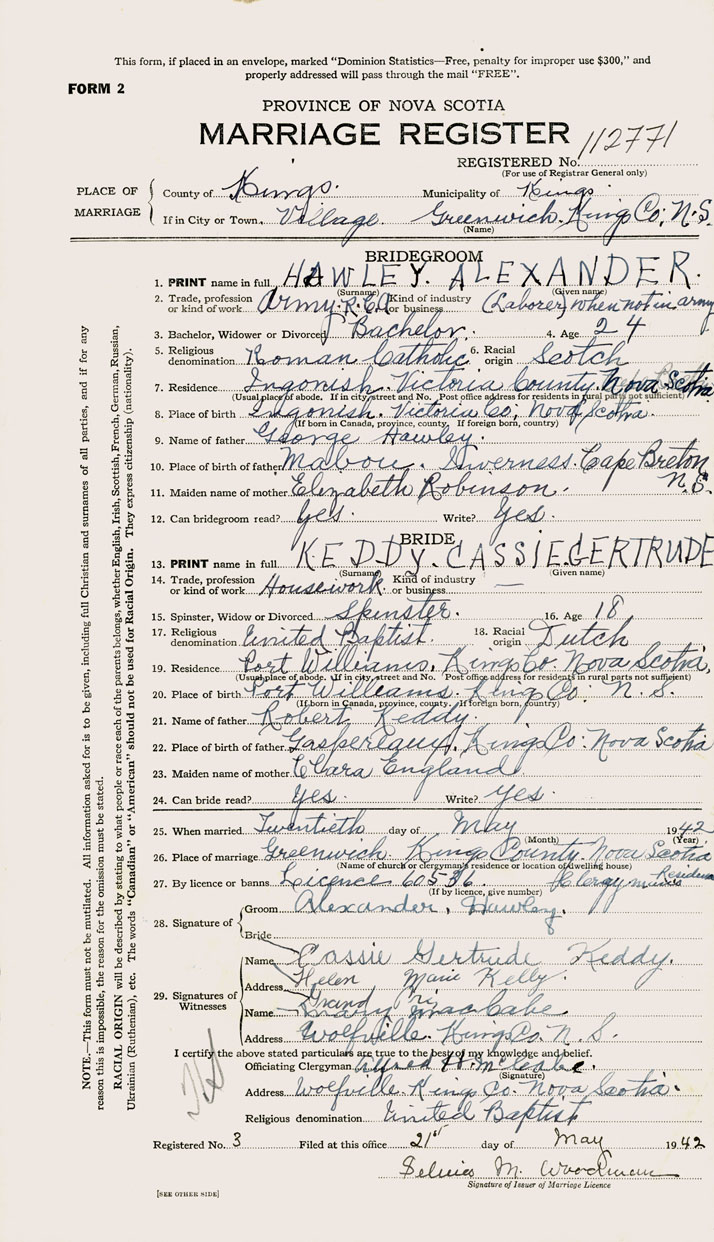 This form, if placed in an envelope, marked "Dominion Statistics—Free, penalty for improper use $300," and
properly addressed will pass through the mail "FREE".
FORM 2
PROVINCE OF NOVA SCOTIA
MARRIAGE REGISTER 112771
REGISTERED No.
(For use of Registrar General only)
PLACE OF MARRIAGE
County of Kings. Municipality of Kings
If in City or Town. Village Greenwich. Kings Co; N.S.
(Name)
BRIDEGROOM
1. PRINT name in full HAWLEY. ALEXANDER.
(Surname) (Given name)
2. Trade, profession or kind of work Army. R.C.A. Kind of industry or business (Laborer) when not in army
3. Bachelor, Widower or Divorced Bachelor. 4. Age 24
5. Religious denomination Roman Catholic 6. Racial origin Scotch
7. Residence Ingonish. Victoria County. Nova Scotia
(Usual place of abode. If in city, street and No. Post office address for residents in rural parts not sufficient)
8. Place of birth Ingonish. Victoria Co; Nova Scotia.
(If born in Canada, province, county. If foreign born, country)
9. Name of father George Hawley.
10. Place of birth of father Mabou. Inverness. Cape Breton
N.S.
11. Maiden name of mother Elizabeth Robinson.
12. Can bridegroom read? Yes. Write? Yes.
BRIDE
13. PRINT name in full KEDDY. CASSIE GERTRUDE
(Surname) (Given name)
14. Trade, profession or kind of work Housework. Kind of industry or business —
15. Spinster, Widow or Divorced Spinster. 16. Age 18
17. Religious denomination United Baptist. 18. Racial origin Dutch
19. Residence Port Williams. Kings Co. Nova Scotia,
(Usual place of abode. If in city, street and No. Post office address for residents in rural parts not sufficient)
20. Place of birth Port Williams. Kings Co: N.S.
(If born in Canada, province, county. If foreign born, country)
21. Name of father Robert Keddy.
22. Place of birth of father Gaspereaux, Kings Co: Nova Scotia
23. Maiden name of mother Clara England
24. Can bride read? Yes. Write? Yes.
25. When married Twentieth day of May 1942
(Month) (Year)
26. Place of marriage Greenwich Kings County. Nova Scotia
(Name of church or clergyman's residence or location of dwelling house)
27. By licence or banns Licence 60536. Clergymans Residence
(If by licence, give number)
28. Signature of
Groom Alexander, Hawley.
Bride
Cassie Gertrude Keddy.
29. Signatures of Witnesses
Name
Address Helen Marie Kelly.
Grand Pre
Name Mary MacCabe
Address Wolfville. Kings Co. N.S.
I certify the above stated particulars are true to the best of my knowledge and belief.
Officiating Clergyman Alfred H. McCabe.
(Signature)
Address Wolfville. Kings Co. Nova Scotia.
Religious denomination United Baptist
Registered No. 3 Filed at this office 21st day of May 1942
M. Woodman
Signature of Issuer of Marriage Licence
[SEE OTHER SIDE]
NOTE.—This form must not be mutilated. All information asked for is to be given, including full Christian and surnames of all parties, and if for any
reason this is impossible, the reason for the omission must be stated.
RACIAL ORIGIN will be described by stating to what people or race each of the parents belongs, whether English, Irish, Scottish, French, German, Russian,
Ukrainian (Ruthenian), etc. The words "Canadian" or "American" should not be used for Racial Origin. They express citizenship (nationality).